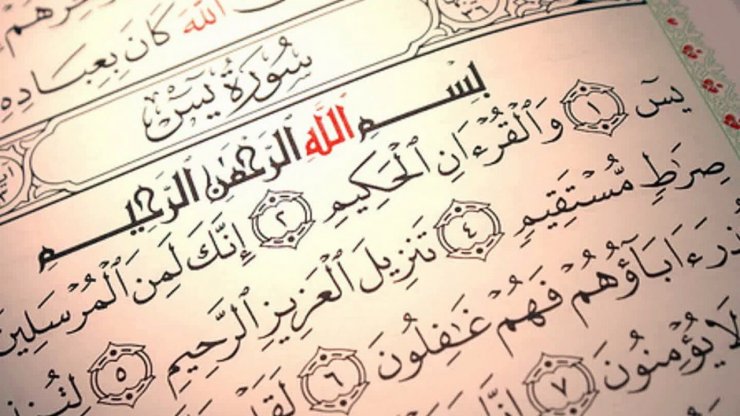 ٱللَّهَ كَانَ بِعِبَادِهِ
سُورَةُ يسٓ
بِسْمِ ٱللَّهِ ٱلرَّحْمَٰنِ ٱلرَّحِيمِ
يسٓ ١ وَٱلْقُرْءَانِ ٱلْحَكِيمِ ٢ إِنَّكَ لَمِنَ ٱلْمُرْسَلِينَ
صِرَٰطٍ مُّسْتَقِيمٍ ٤ تَنزِيلَ ٱلْعَزِيزِ ٱلرَّحِيمِ ٥ لِتُنذِ
ءَابَآؤُهُمْ فَهُمْ غَٰفِلُونَ ٦ لَقَدْ
لَا يُؤْمِنُونَ ٧ إِنَّا